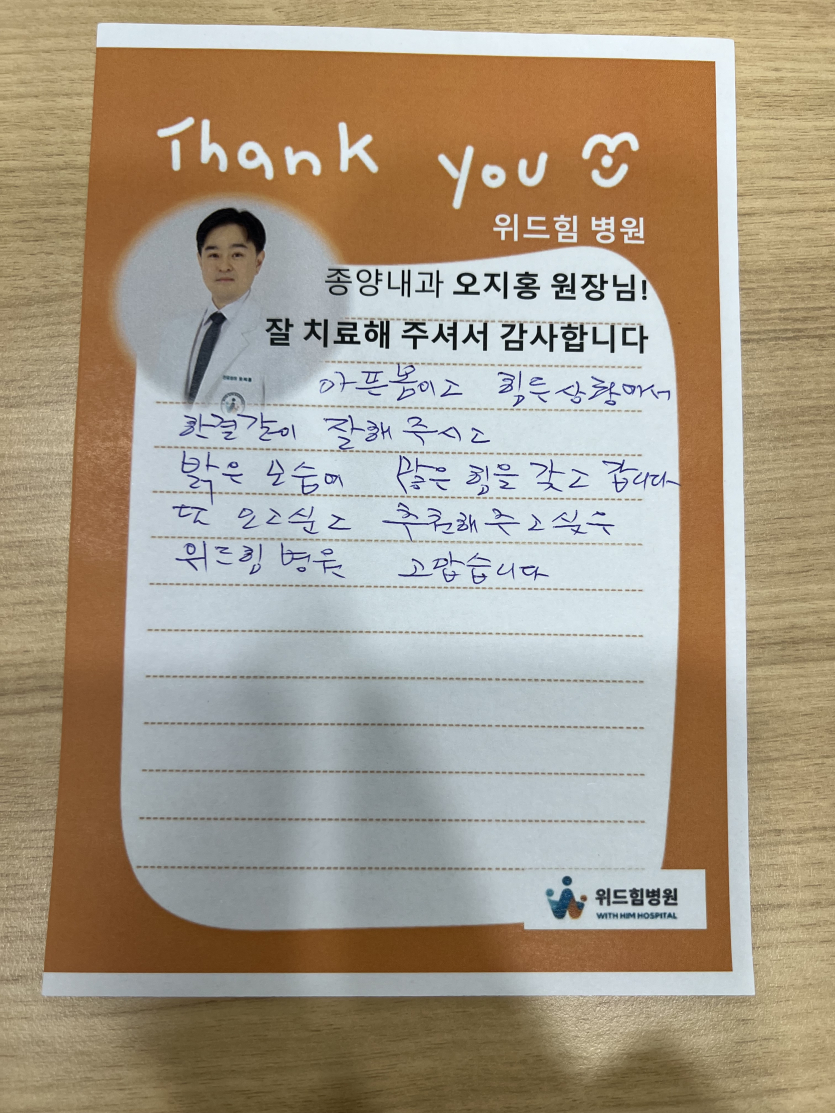 Thank you
위드힘 병원
종양내과 오지홍 원장님!
잘 치료해 주셔서 감사합니다
아픈몸이고 힘든상황마저
한결같이 잘해주시고
밝은 모습에 많은 힘을 갖고 갑니다
또 오고싶고 추천해주고싶은
위드힘 병원 고맙습니다
위드힘병원
WITH HIM HOSPITAL